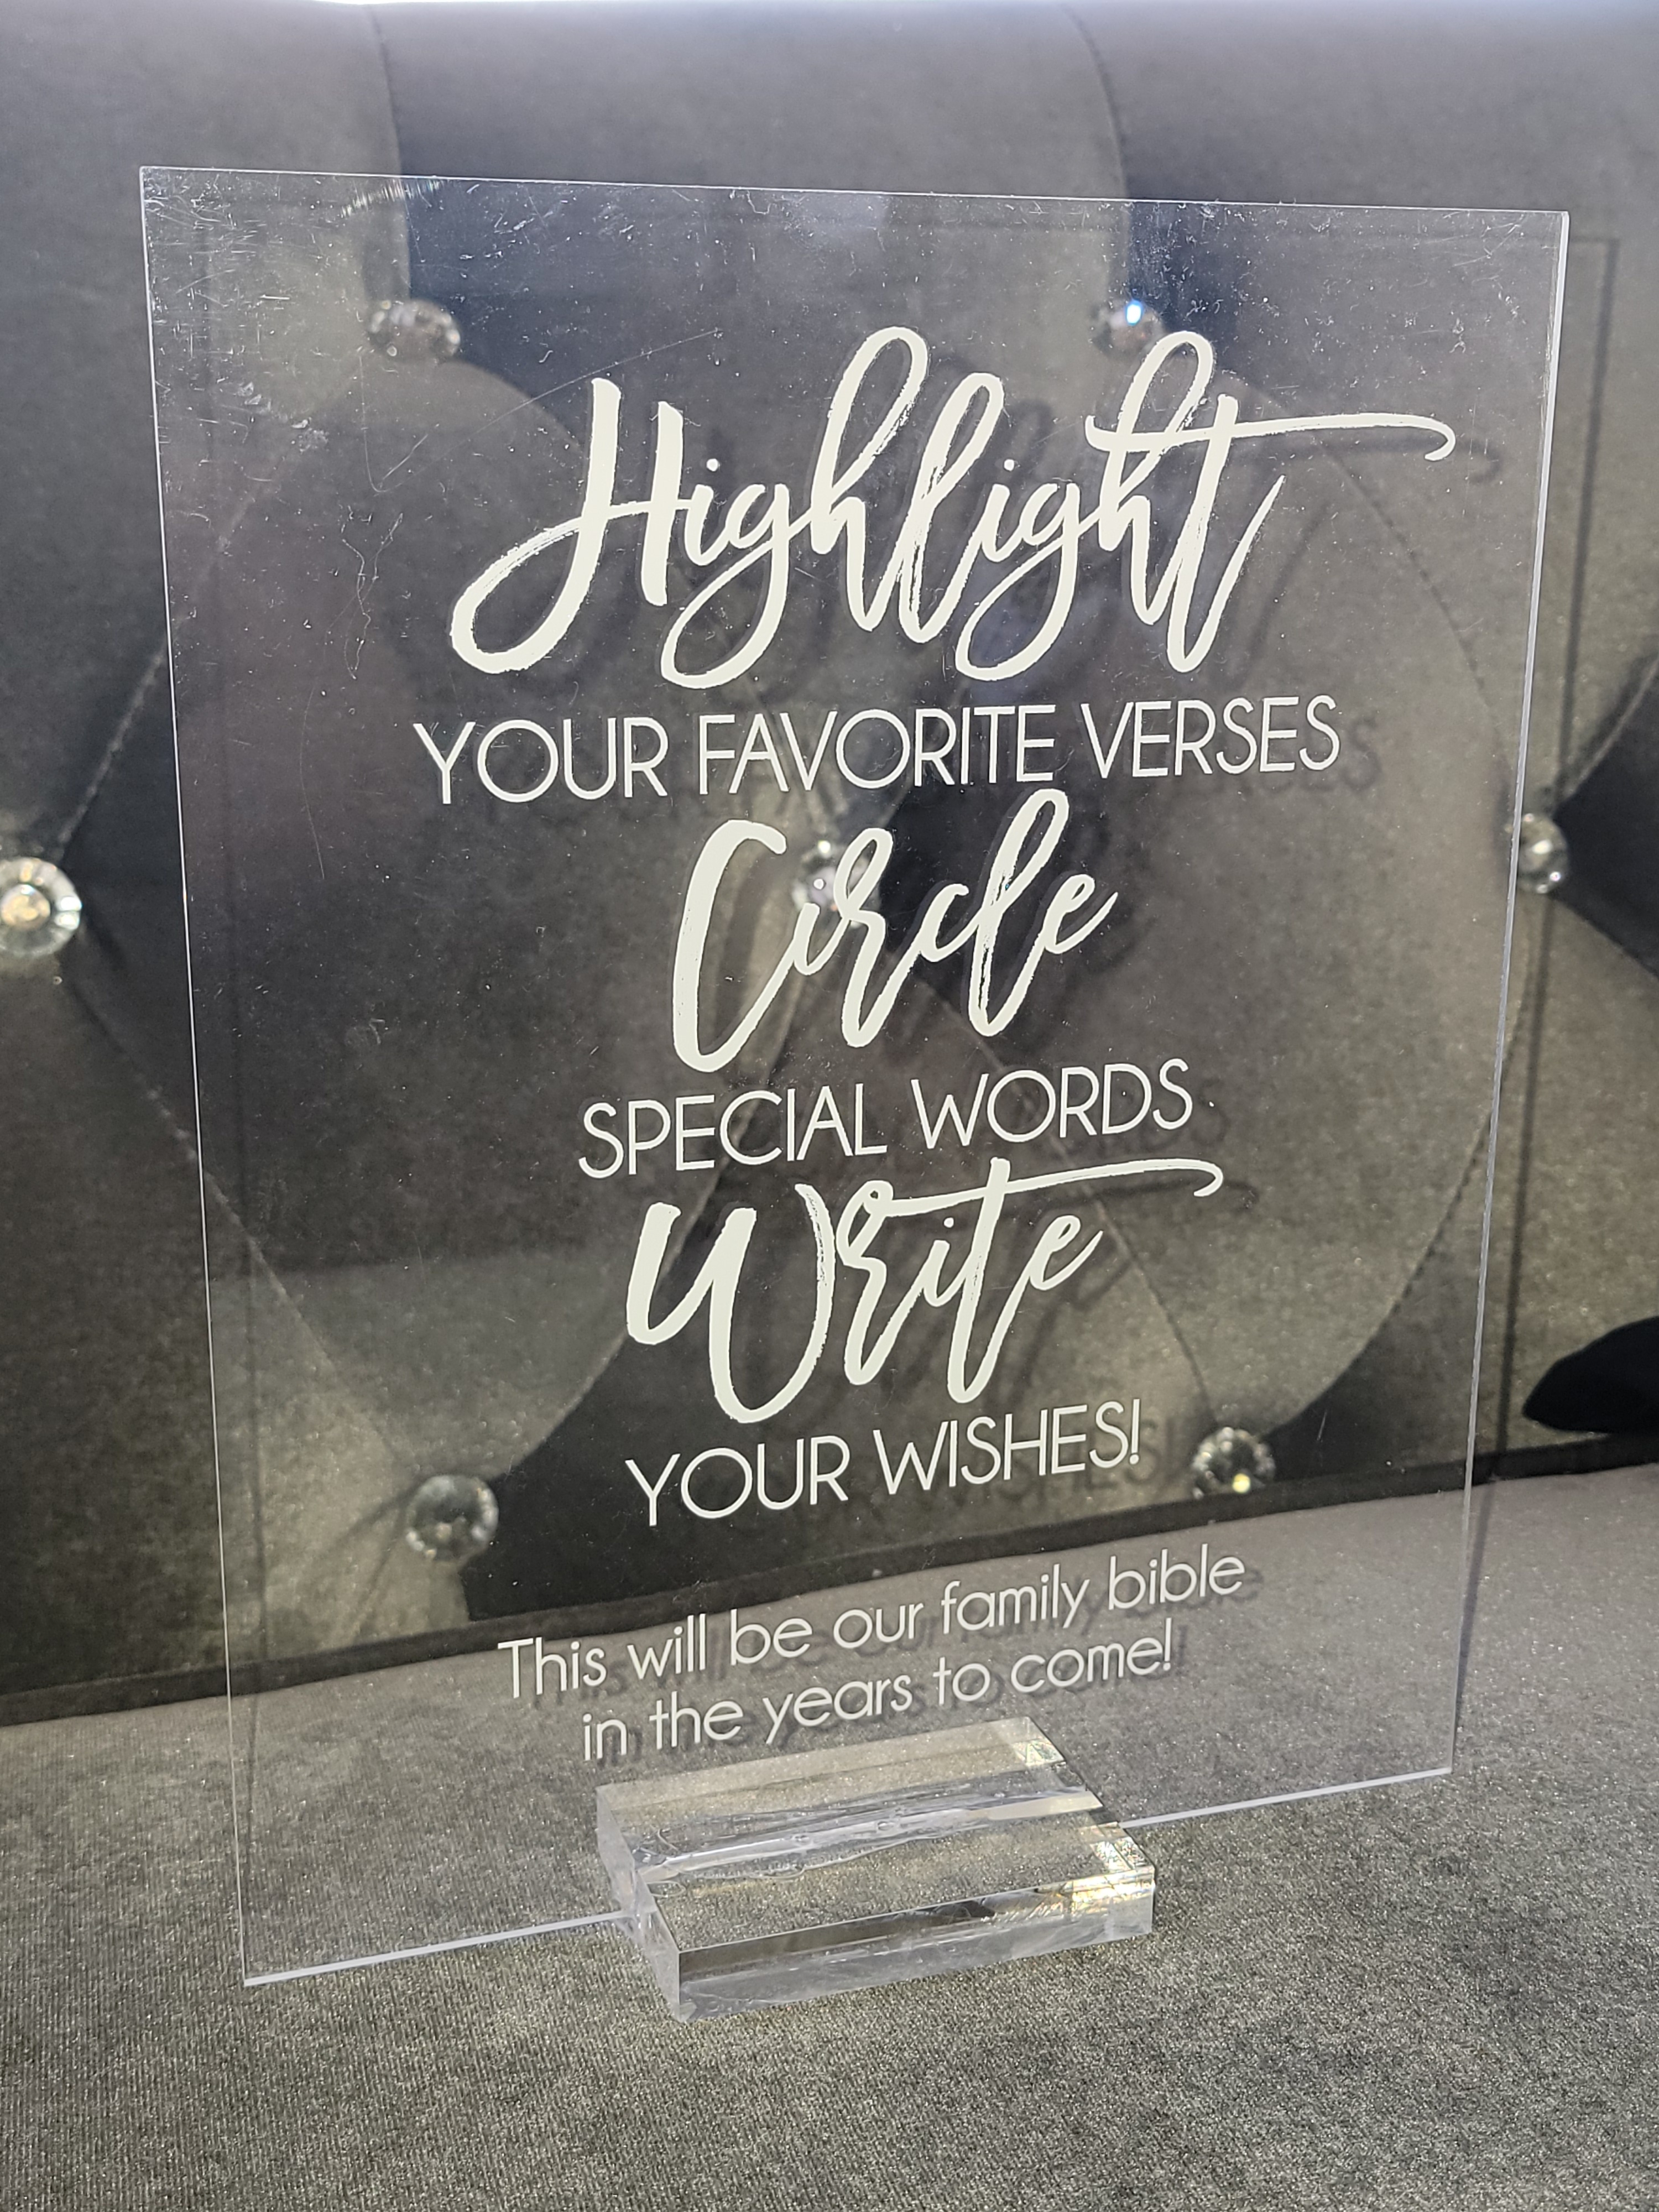 Highlight
YOUR FAVORITE VERSES
Circle
SPECIAL WORDS
Write
YOUR WISHES!
This will be our family bible
in the years to come!